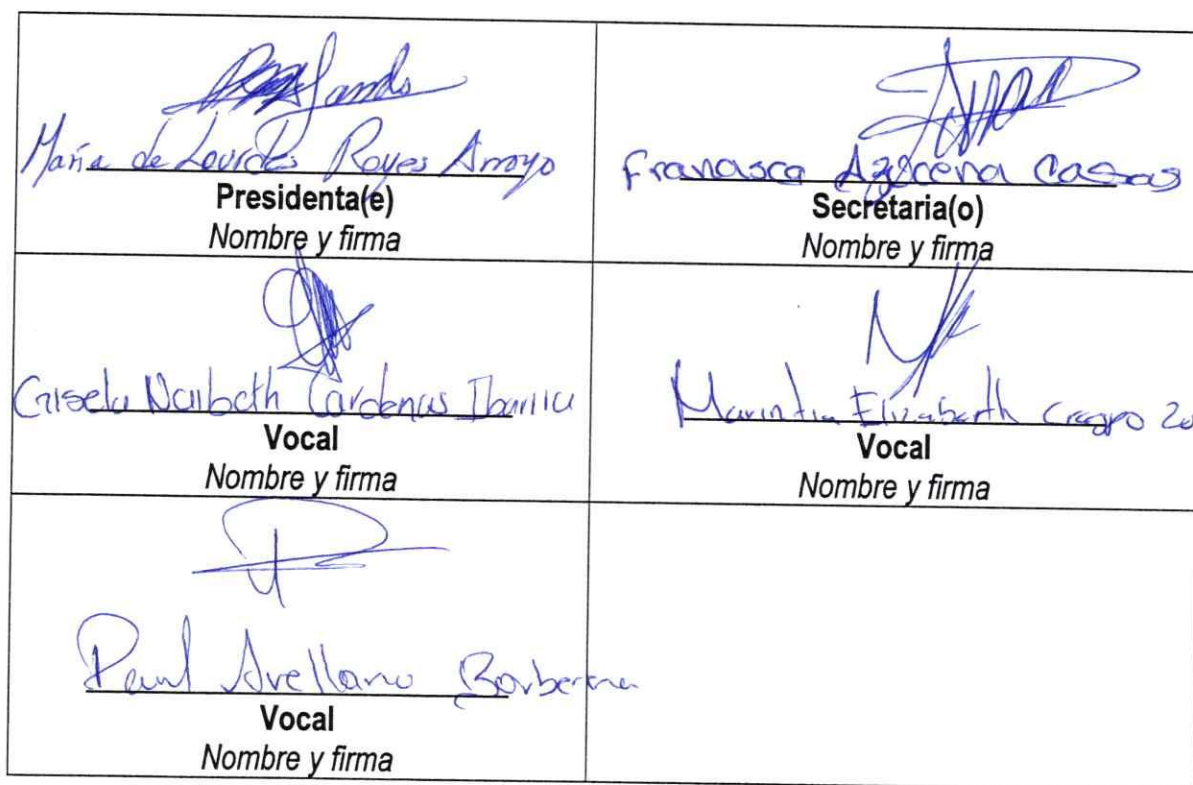 María de Lourdes Reyes Arroyo
Presidenta(e)
Nombre y firma
Francisca Azucena Casas
Secretaria(o)
Nombre y firma
Gisela Naibeth Cardenas Ibarria
Vocal
Nombre y firma
Elizabeth Crespo
Vocal
Nombre y firma
Paul Arellano
Vocal
Nombre y firma